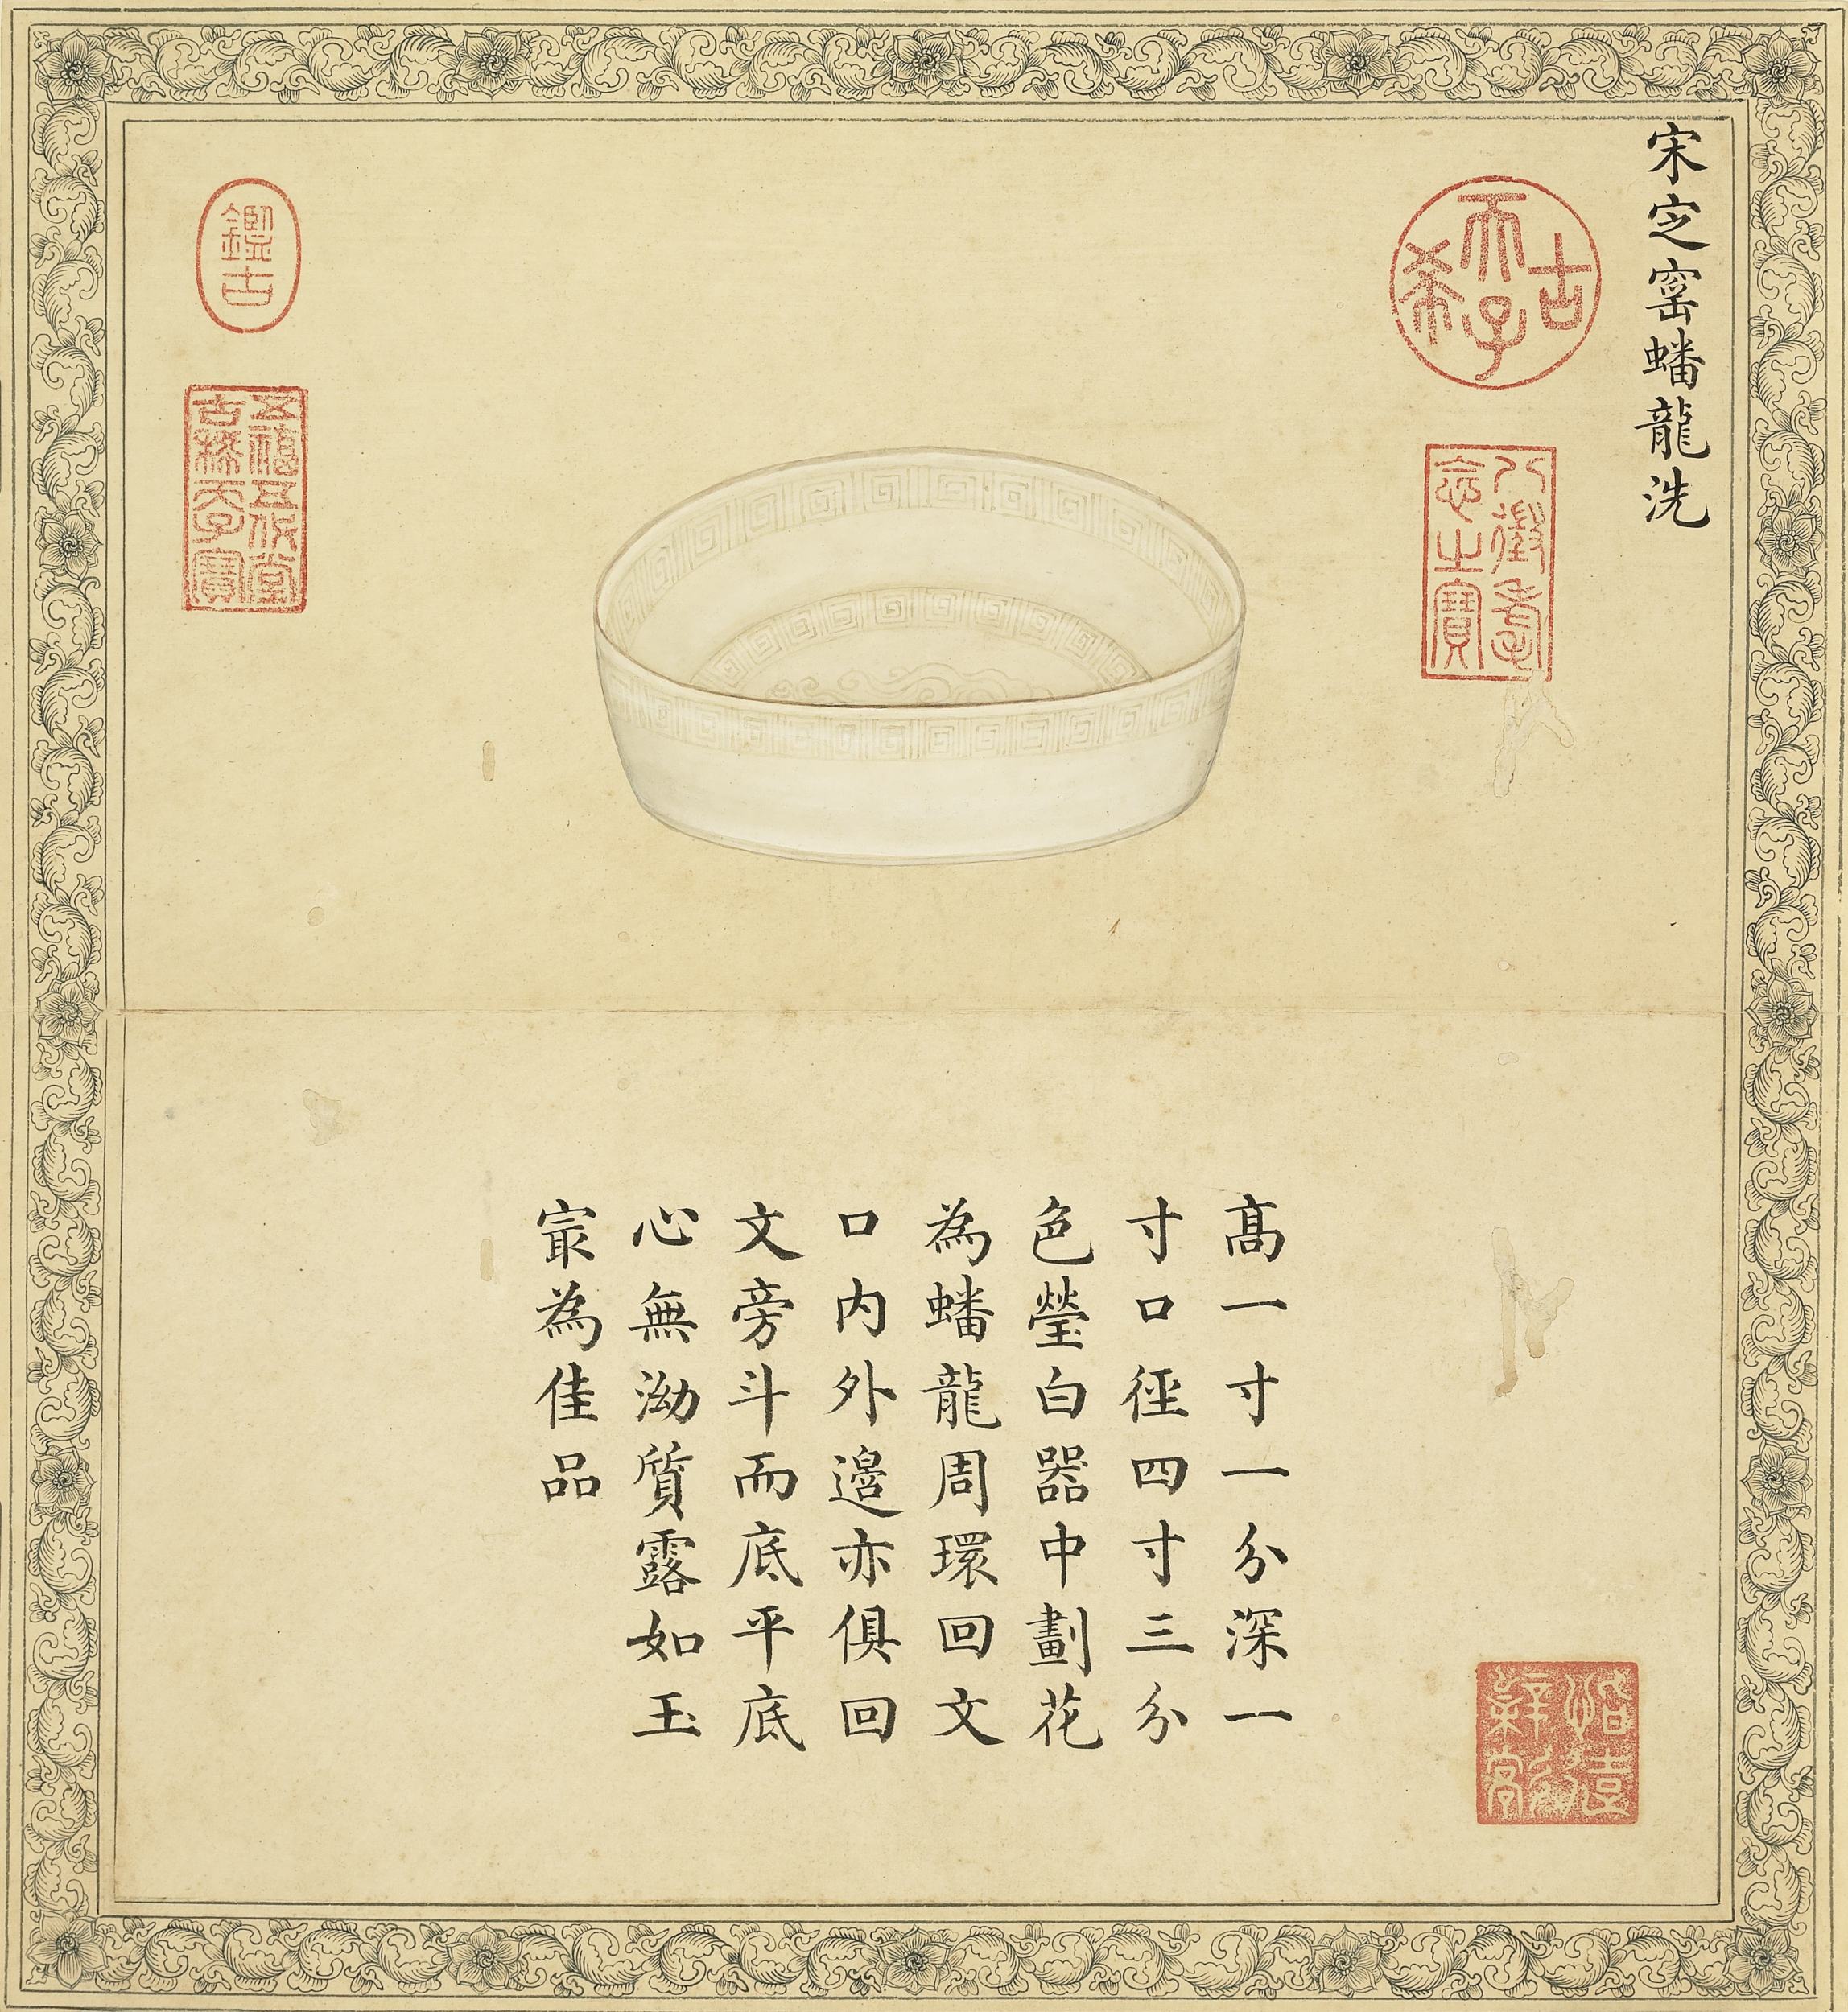 宋㝎窑蟠龍洗
古希天子
八徵耄念之寶
鑑古
五福五代堂古稀天子寶
髙一寸一分深一
寸口徑四寸三分
色瑩白器中劃花
為蟠龍周環回文
口内外邊亦俱回
文旁斗而底平底
心無泑質露如玉
㝡為佳品